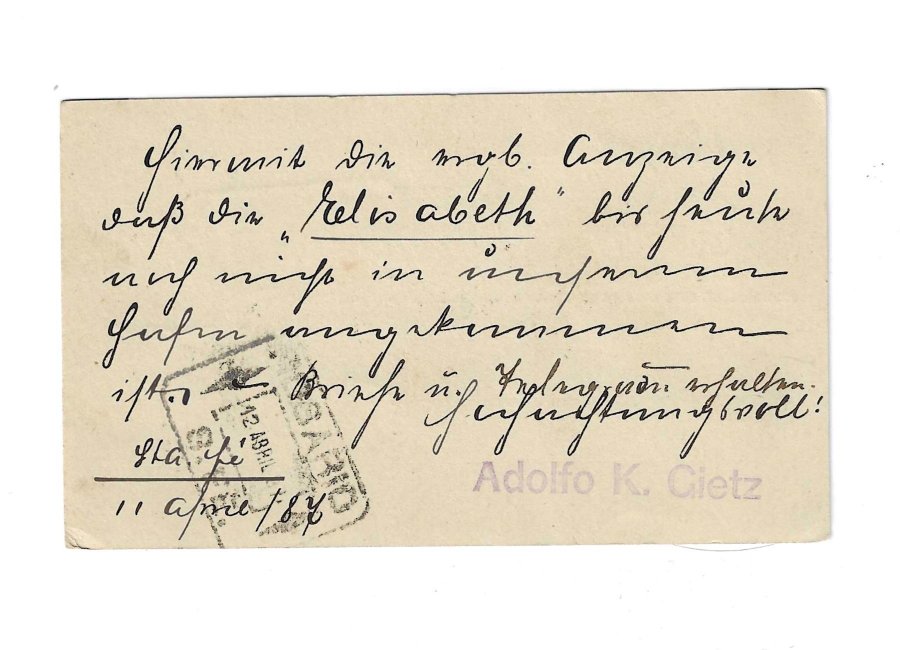 Hiermit die ergb. Anzeige
daß die „Elisabeth" bis heute
noch nicht in unserem
Hafen angekommen
ist. – Briefe u. Telegramm erhalten.
Hochachtungsvoll!
Sta Fé
11 April /87
Adolfo K. Gietz
ROSARIO
12 ABRIL
S. FÉ.